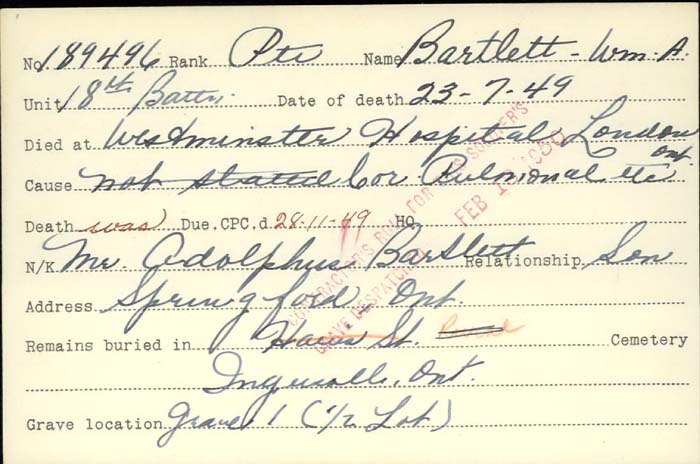 No. 189496 Rank Pte Name Bartlett - Wm. A.
Unit 18th Battn. Date of death 23-7-49
Died at Westminster Hospital, London Ont.
Cause not stated Cor Pulmonal etc
Death was Due. CPC.d 28-11-49 HQ
N/K Mr. Adolphus Bartlett Relationship Son
Address Springford Ont.
Remains buried in Harris St. Cemetery
Ingersoll, Ont.
Grave location Grave 1 (1/2 Lot)
CONTRACTOR'S ROLL FOR SOLDIER'S
GRAVE DESPATCHED FEB 1950